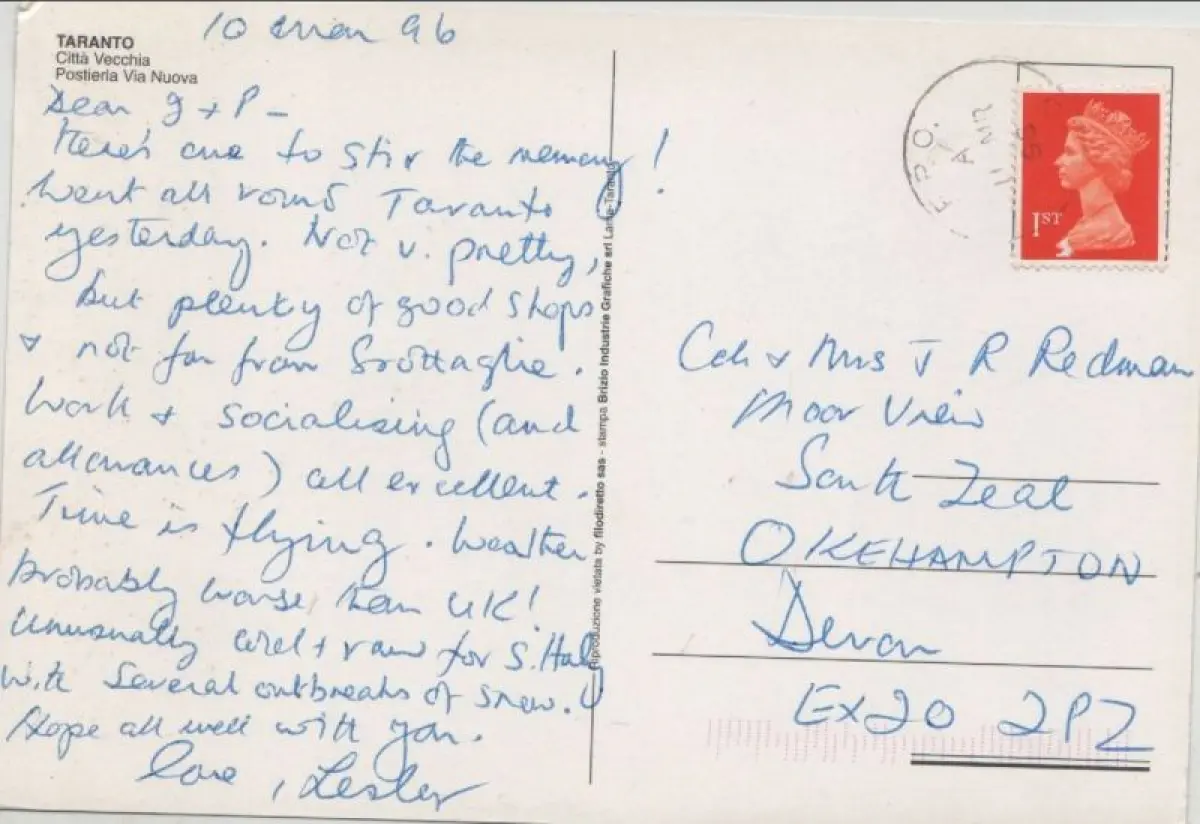 10 Mar 96
TARANTO
Città Vecchia
Postierla Via Nuova
Dear J + P -
Here's one to stir the memory!
Went all round Taranto
yesterday. Not v. pretty,
but plenty of good shops
& not far from Grottaglie.
Work & socialising (and
allowances) all excellent.
Time is flying. Weather
probably worse than UK!
Unusually cold + raw for S. Italy
with several outbreaks of snow.
Hope all well with you.
Love, Lesley
Riproduzione vietata by filodiretto sas - stampa Brizio Industrie Grafiche srl
F.P.O.
A
11 MR
1ST
& Mrs J R Redman
Moor View
South Zeal
OKEHAMPTON
Devon
EX20 2PZ